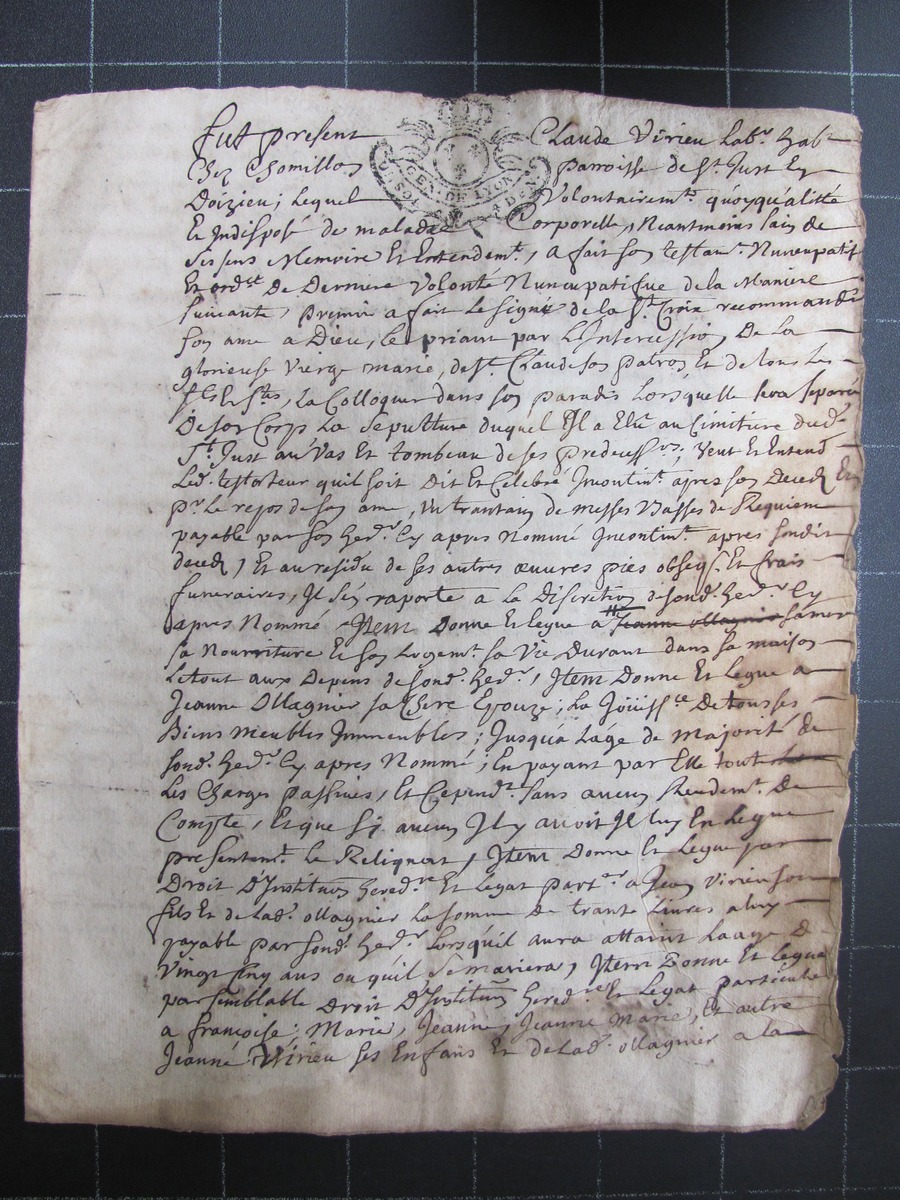 fut present Claude Virieu Labr. habt
Chez Chomillon parroisse de St. Just En
Doizieu; Lequel Volontairemt. quoyqu'alitté
Et Indisposé de maladie Corporelle, Neantmoins sain de
ses sens Memoire Et Entendemt., a fait son testamt. Nuncupatif
Et ordce De Derniere Volonté Nuncupatifue de la Maniere
suivante, premier a fait Le signe de la Ste. Croix recommandé
son ame a Dieu, le priant par L'Intercession De La
glorieuse Vierge marie, de St. Claude son patron Et de tous Les
Sts Et Stes, La Colloquer dans son paradis Lorsquelle sera separée
De son Corps La sepulture duquel Il a Elu au Cimitiere dud.
St. Just au Vas Et tombeau de ses predecessrs; Veut Et Entend
Led. testateur quil soit Dit Et Celebré Incontint. apres son Decedz Et
pr. Le repos de son ame, Un trantain de messes Basses de Requiem
payable par son herr. Cy apres Nommé Incontint. apres sondit
decedz, Et au residu de ses autres œuvres pies obseqs. Et frais
funeraires, Il s'en raporte a la Discretion de sond. herr. Cy
apres Nommé Item Donne Et legue a Jeanne ollagnier sa mere
sa Nourriture Et son Logemt. sa Vie Durant dans sa maison
Le tout aux Depens de sond. herr., Item Donne Et Legue a
Jeanne Ollagnier sa Chere Epouze, La Joüissce De tous ses
Biens meubles Immeubles; Jusqu'a L'age de majorité de
sond. herr. Cy apres Nommé, En payant par Elle tout
Les Charges passives, Et Cependt. sans aucun Rendemt. De
Compte, Et que si aucun Il y avoit Il luy En Legue
presentemt. le Reliquat, Item Donne Et Legue par
Droit D'Institution heredre Et Legat partr a Jean Virieu son
fils Et de Lad. ollagnier La somme De trante Livres a luy
payable par sond. herr. Lorsquil aura attaint Laage De
Vingt Cinq ans ou quil se mariera, Item Donne Et Legue
par semblable Droit D'Institution heredre Et Legat particulier
a francoise, Marie, Jeanne, Jeanne Marie, Et autre
Jeanne Virieu ses Enfans Et de Lad. ollagnier a la